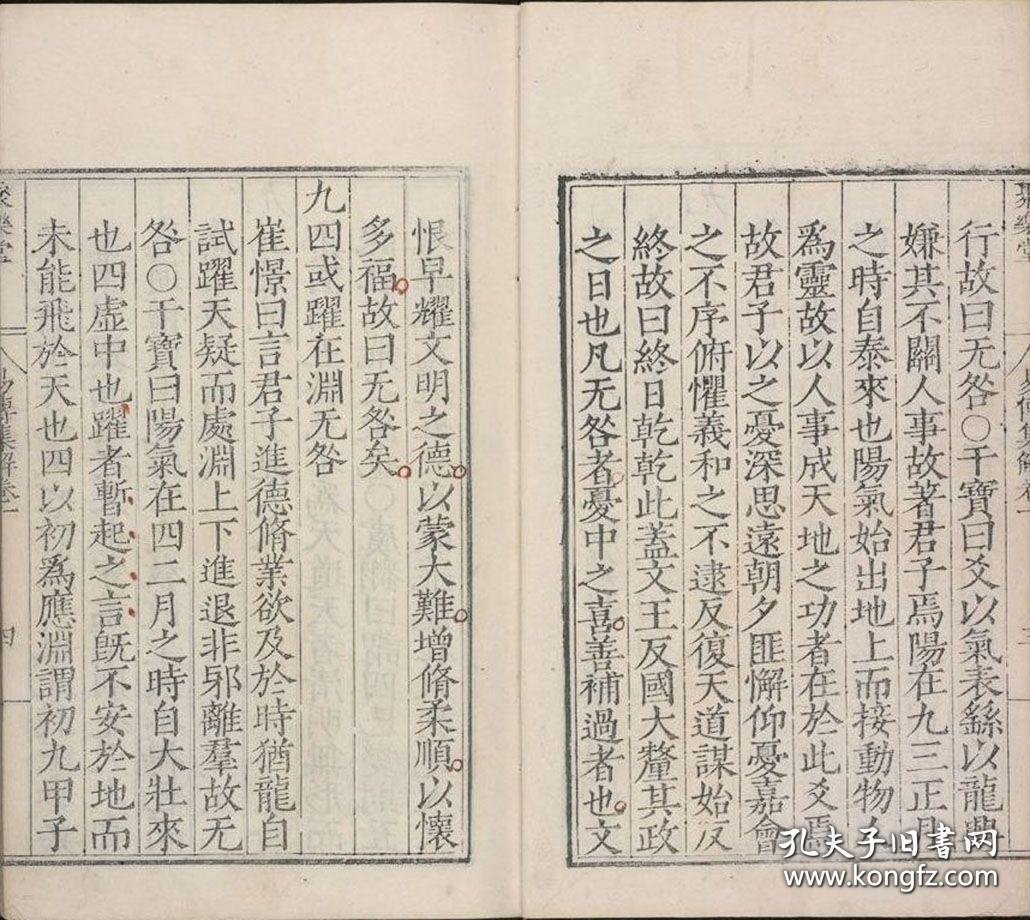 聚樂堂
易傳集解卷一
行故曰无咎○干寶曰爻以氣表繇以龍興
嫌其不關人事故著君子焉陽在九三正月
之時自泰來也陽氣始出地上而接動物人
為靈故以人事成天地之功者在於此爻焉
故君子以之憂深思遠朝夕匪懈仰憂嘉會
之不序俯懼義和之不逮反復天道謀始反
終故曰終日乾乾此蓋文王反國大釐其政
之日也凡无咎者憂中之喜善補過者也文
恨早耀文明之德以蒙大難增脩柔順以懷
多福故曰无咎矣
九四或躍在淵无咎
崔憬曰言君子進德脩業欲及於時猶龍自
試躍天疑而處淵上下進退非邪離羣故无
咎○干寶曰陽氣在四二月之時自大壯來
也四虛中也躍者暫起之言旣不安於地而
未能飛於天也四以初為應淵謂初九甲子
聚樂堂
易傳集解卷一
四
孔夫子旧书网
www.kongfz.com